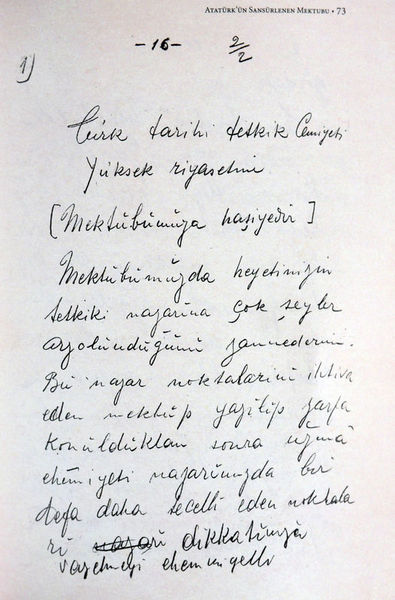 ATATÜRK'ÜN SANSÜRLENEN MEKTUBU • 73
-16- 2/2
1)
Türk tarihi tetkik Cemiyeti
Yüksek riyasetine
[Mektübümüza haşiyedir]
Mektübümüzda heyetinizin
tetkiki nazarına çok şeyler
arzolünduğünü zannederim.
Bü nazar noktalarını ihtiva
eden mektüp yazilip zarfa
konüldüktan sonra
ehemiyeti nazarımızda bir
defa daha tecelli eden noktala
ri nazari dikkatinıza
vazetmeği ehemmiyetli